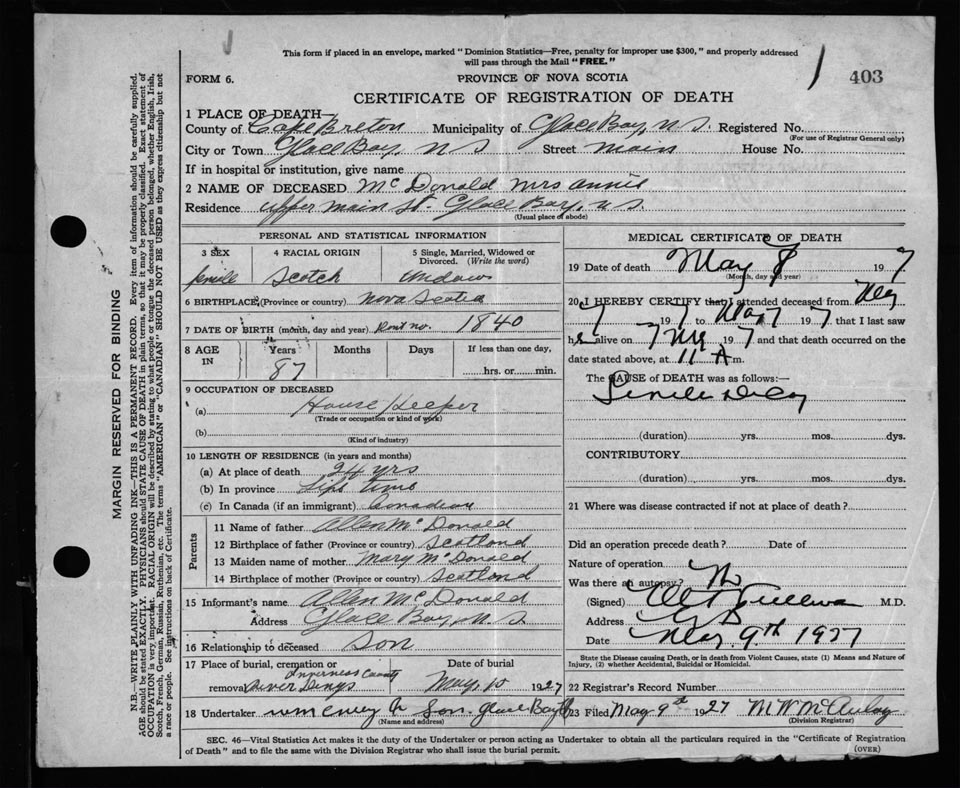 This form if placed in an envelope, marked "Dominion Statistics—Free, penalty for improper use $300," and properly addressed
will pass through the Mail "FREE."
FORM 6.
PROVINCE OF NOVA SCOTIA
403
CERTIFICATE OF REGISTRATION OF DEATH
1 PLACE OF DEATH—
County of Cape Breton Municipality of Glace Bay, N.S. Registered No.
(For use of Registrar General only)
City or Town Glace Bay, N S Street Main House No.
If in hospital or institution, give name
2 NAME OF DECEASED McDonald Mrs Annie
Residence upper Main St. Glace Bay, N.S.
(Usual place of abode)
PERSONAL AND STATISTICAL INFORMATION
3 SEX 4 RACIAL ORIGIN 5 Single, Married, Widowed or
Divorced. (Write the word)
Scotch
6 BIRTHPLACE (Province or country) Nova Scotia
7 DATE OF BIRTH (month, day and year) 1840
8 AGE IN Years Months Days If less than one day,
87 hrs. or min.
9 OCCUPATION OF DECEASED
(a) House Keeper
(Trade or occupation or kind of work)
(b)
(Kind of industry)
10 LENGTH OF RESIDENCE (in years and months)
(a) At place of death 24 yrs
(b) In province Life time
(c) In Canada (if an immigrant) Canadian
Parents
11 Name of father Allen McDonald
12 Birthplace of father (Province or country) Scotland
13 Maiden name of mother Mary McDonald
14 Birthplace of mother (Province or country) Scotland
15 Informant's name Allen McDonald
Address Glace Bay, N.S.
16 Relationship to deceased Son
17 Place of burial, cremation or Date of burial
Inverness County
removal River Denys May 10 1927
18 Undertaker Son Glace Bay
(Name and address)
MEDICAL CERTIFICATE OF DEATH
19 Date of death May 8 19 7
(Month, day and year)
20 I HEREBY CERTIFY that I attended deceased from May
7 19 7 to May 7 19 7 that I last saw
h alive on 7 May 19 7 and that death occurred on the
date stated above, at 11 A m.
The CAUSE of DEATH was as follows:—
Senile Decay
(duration) yrs. mos. dys.
CONTRIBUTORY
(duration) yrs. mos. dys.
21 Where was disease contracted if not at place of death?
Did an operation precede death? Date of
Nature of operation
Was there an autopsy? No
(Signed) Sullivan M.D.
Address G B
Date May 9th 1927
State the Disease causing Death, or in death from Violent Causes, state (1) Means and Nature of
Injury, (2) whether Accidental, Suicidal or Homicidal.
22 Registrar's Record Number
23 Filed May 9th 1927 M W McAulay
(Division Registrar)
SEC. 46—Vital Statistics Act makes it the duty of the Undertaker or person acting as Undertaker to obtain all the particulars required in the "Certificate of Registration
of Death" and to file the same with the Division Registrar who shall issue the burial permit.
(OVER)
MARGIN RESERVED FOR BINDING
N.B.—WRITE PLAINLY WITH UNFADING INK—THIS IS A PERMANENT RECORD. Every item of information should be carefully supplied.
AGE should be stated EXACTLY. PHYSICIANS should STATE CAUSE OF DEATH in plain terms, so that it may be properly classified. Exact statement of
OCCUPATION is very important. RACIAL ORIGIN will be described by stating to what people or tongue the deceased person belonged, whether English, Irish,
Scotch, French, German, Russian, Ruthenian, etc. The terms "AMERICAN" or "CANADIAN" SHOULD NOT BE USED as they express citizenship but not
a race or people. See instructions on back of Certificate.